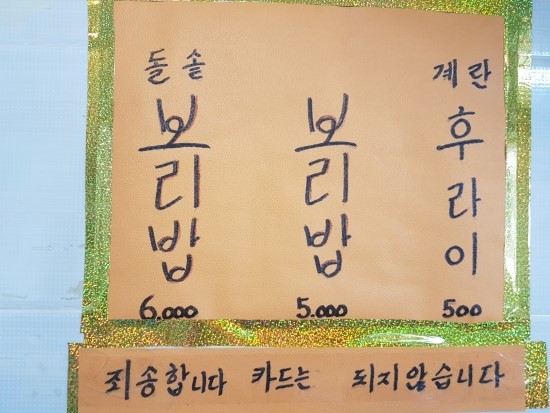 돌솥 보리밥 6,000
보리밥 5.000
계란 후라이 500
죄송합니다 카드는 되지않습니다